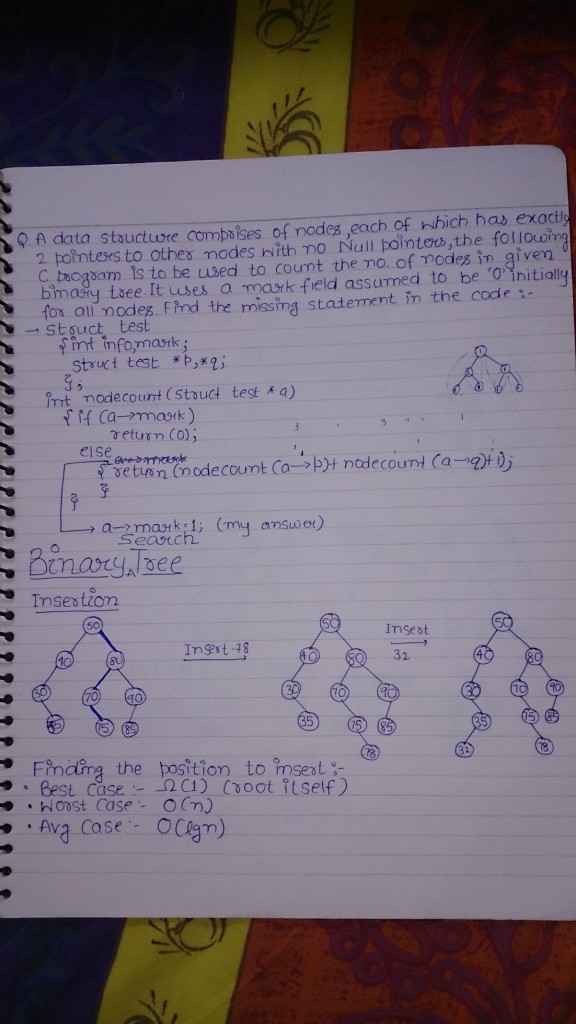 Q. A data structure comprises of nodes, each of which has exactly
2 pointers to other nodes with no Null pointers, the following
C program is to be used to count the no. of nodes in given
binary tree. It uses a mark field assumed to be '0' initially
for all nodes. Find the missing statement in the code :-
→ Struct test
{ int info, mark;
struct test *p, *q;
};
int nodecount (struct test *a)
{ if (a→mark)
return (0);
else
{ return (nodecount (a→p) + nodecount (a→q)+1);
}
}
→ a→mark=1; (my answer)
Search
Binary Tree
Insertion
50 40 80 30 70 90 75 85
Insert 78
50 40 80 30 70 90 35 75 85 78
Insert
32
50 40 80 30 70 90 35 75 85 32 78
Finding the position to insert :-
• Best Case :- Ω(1) (root itself)
• Worst Case :- O(n)
• Avg Case :- O(lgn)